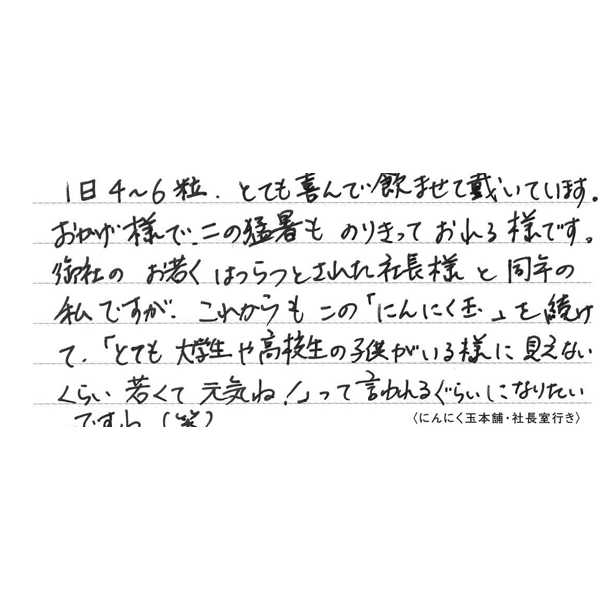 1日4~6粒.とても喜んで飲ませて戴いています。
おかげ様で、この猛暑ものりきっておれる様です。
御社のお若くはつらつとされた社長様と同年の
私ですが、これからもこの「にんにく玉」を続け
て、「とても大学生や高校生の子供がいる様に見えない
くらい若くて元気ね!」って言われるぐらいになりたい
ですね(笑)
〈にんにく玉本舗・社長室行き〉